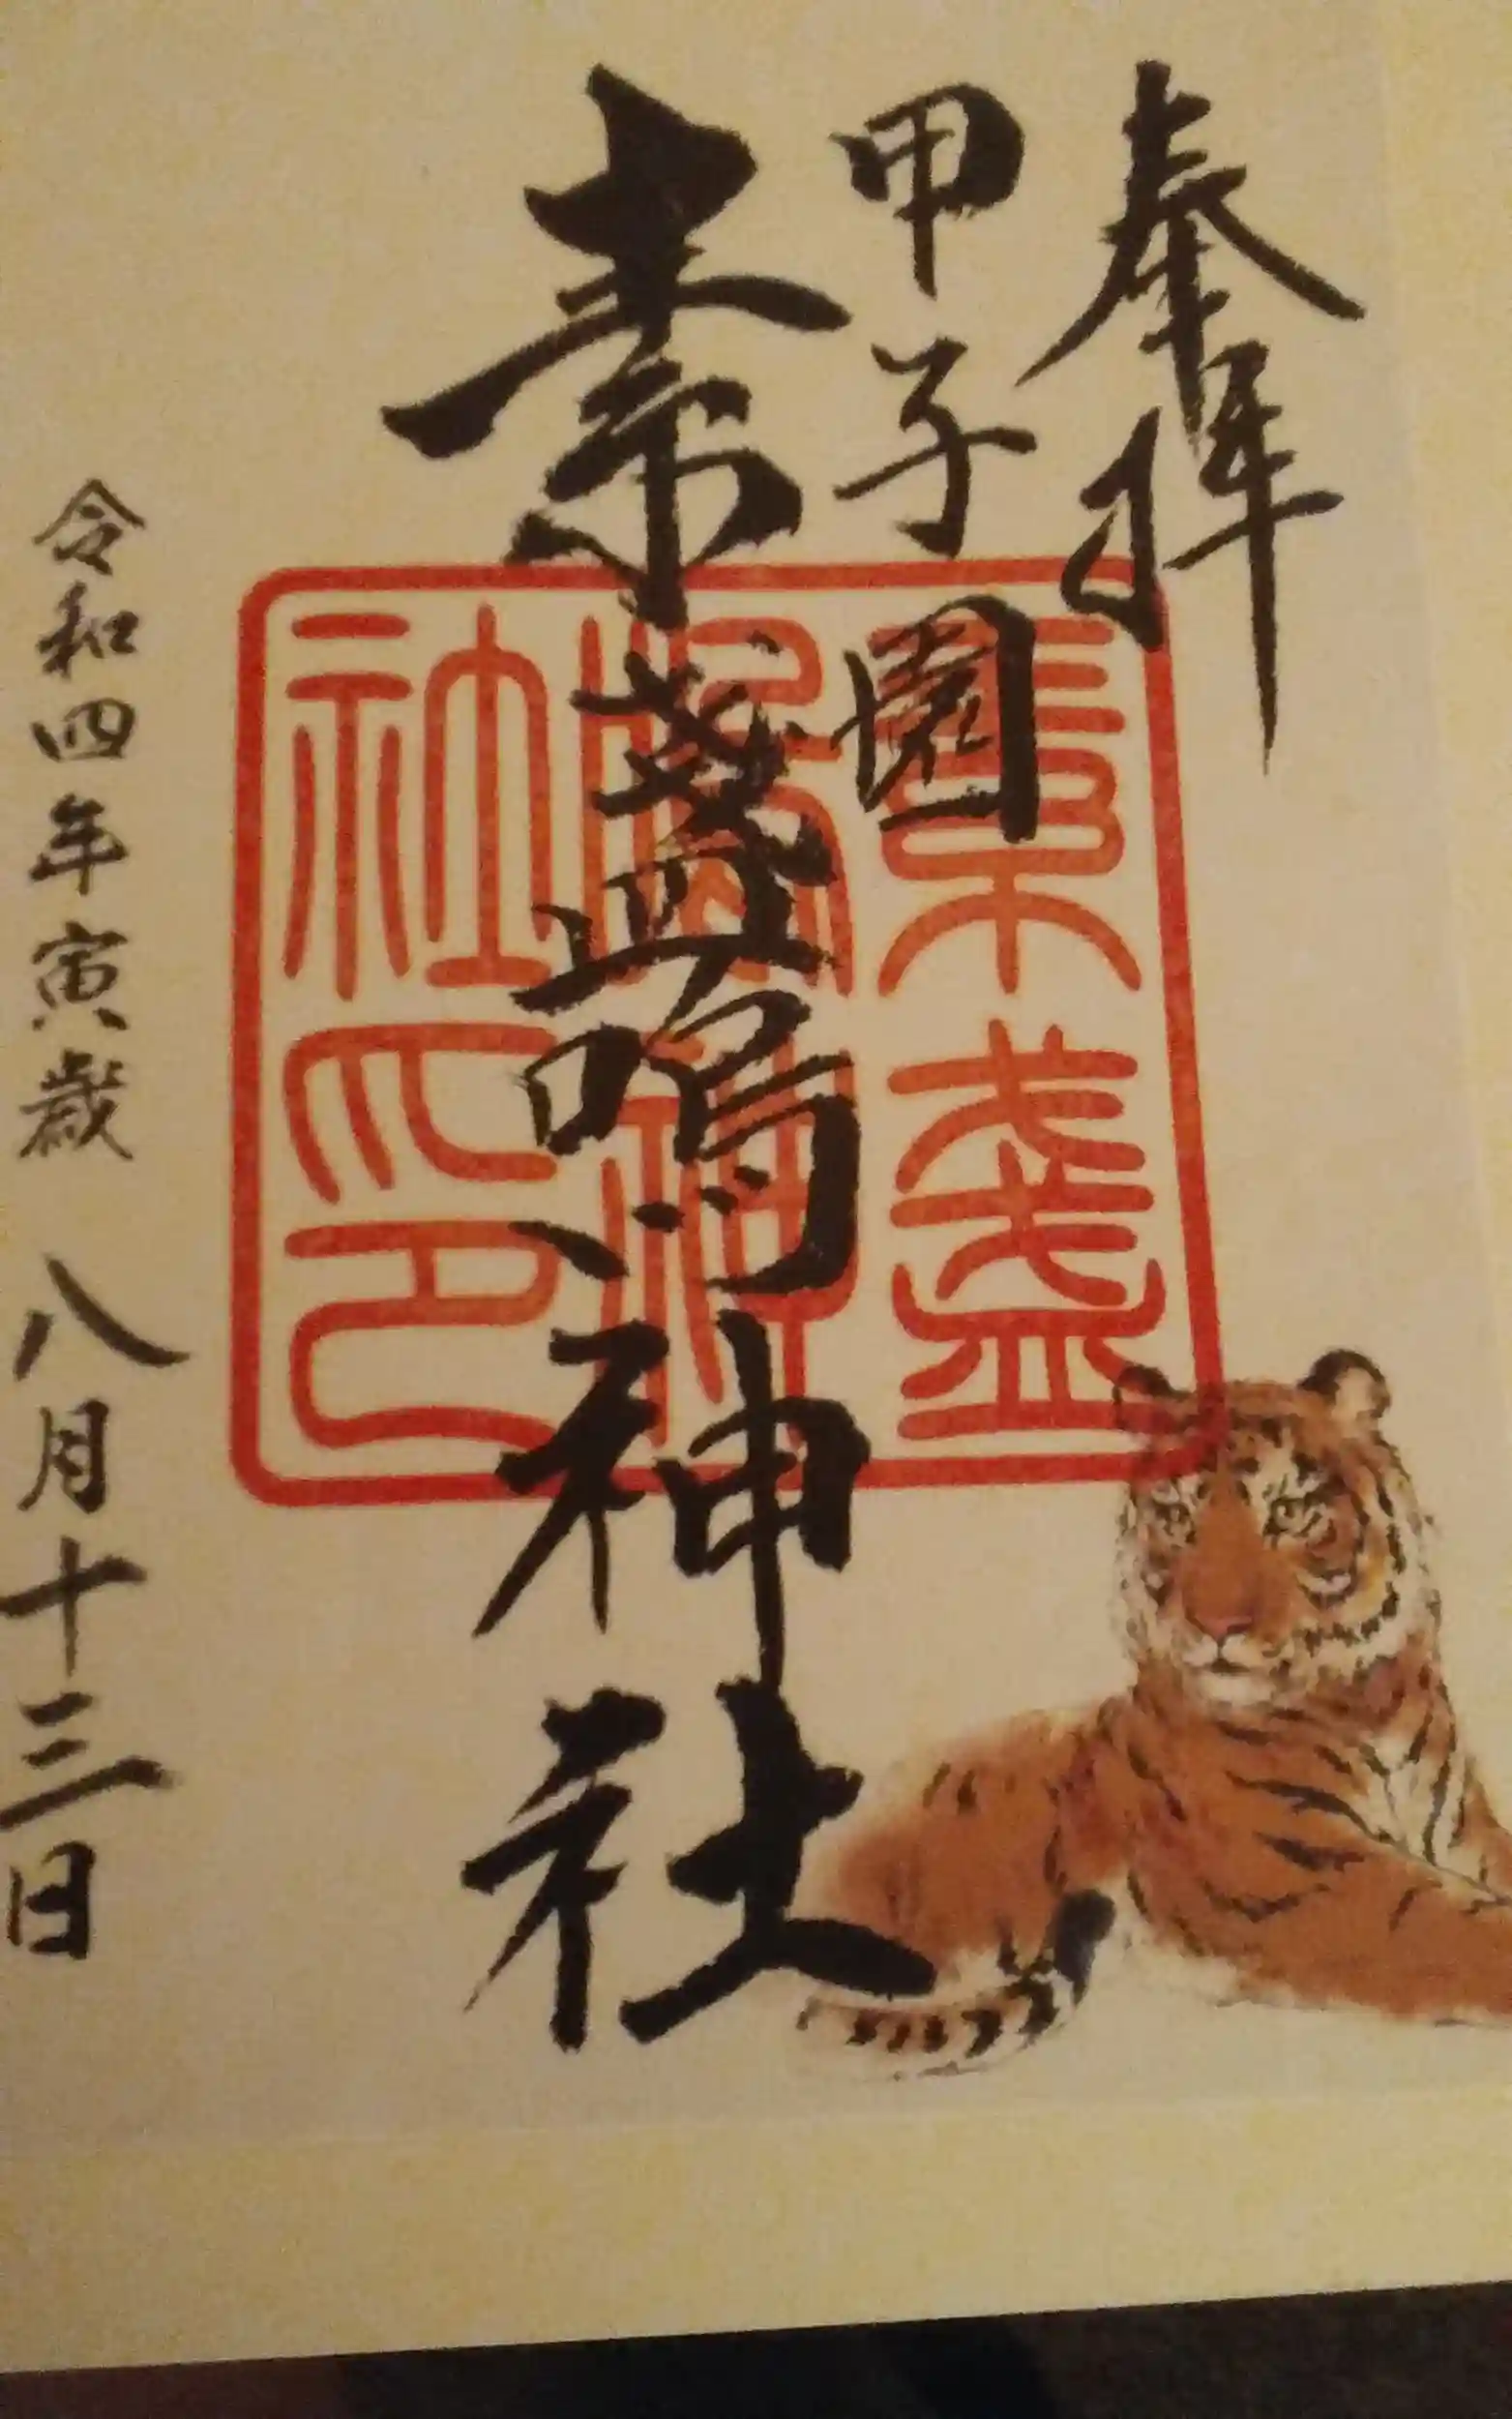 奉拝
甲子園
素盞嗚神社
令和四年寅歳 八月十三日
素盞
嗚神
社印